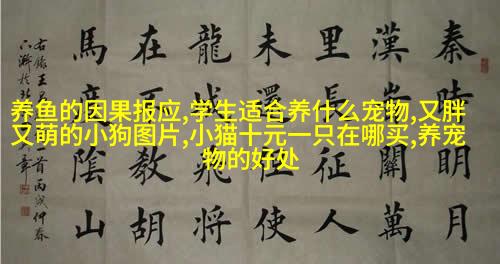 养鱼的因果报应,学生适合养什么宠物,又胖
又萌的小狗图片,小猫十元一只在哪买,养宠
物的好处
秦時明月
漢時關萬
里長征人
未還使
龍城飛將
在不教胡
馬度陰山
右錄王
首丙戌仲春